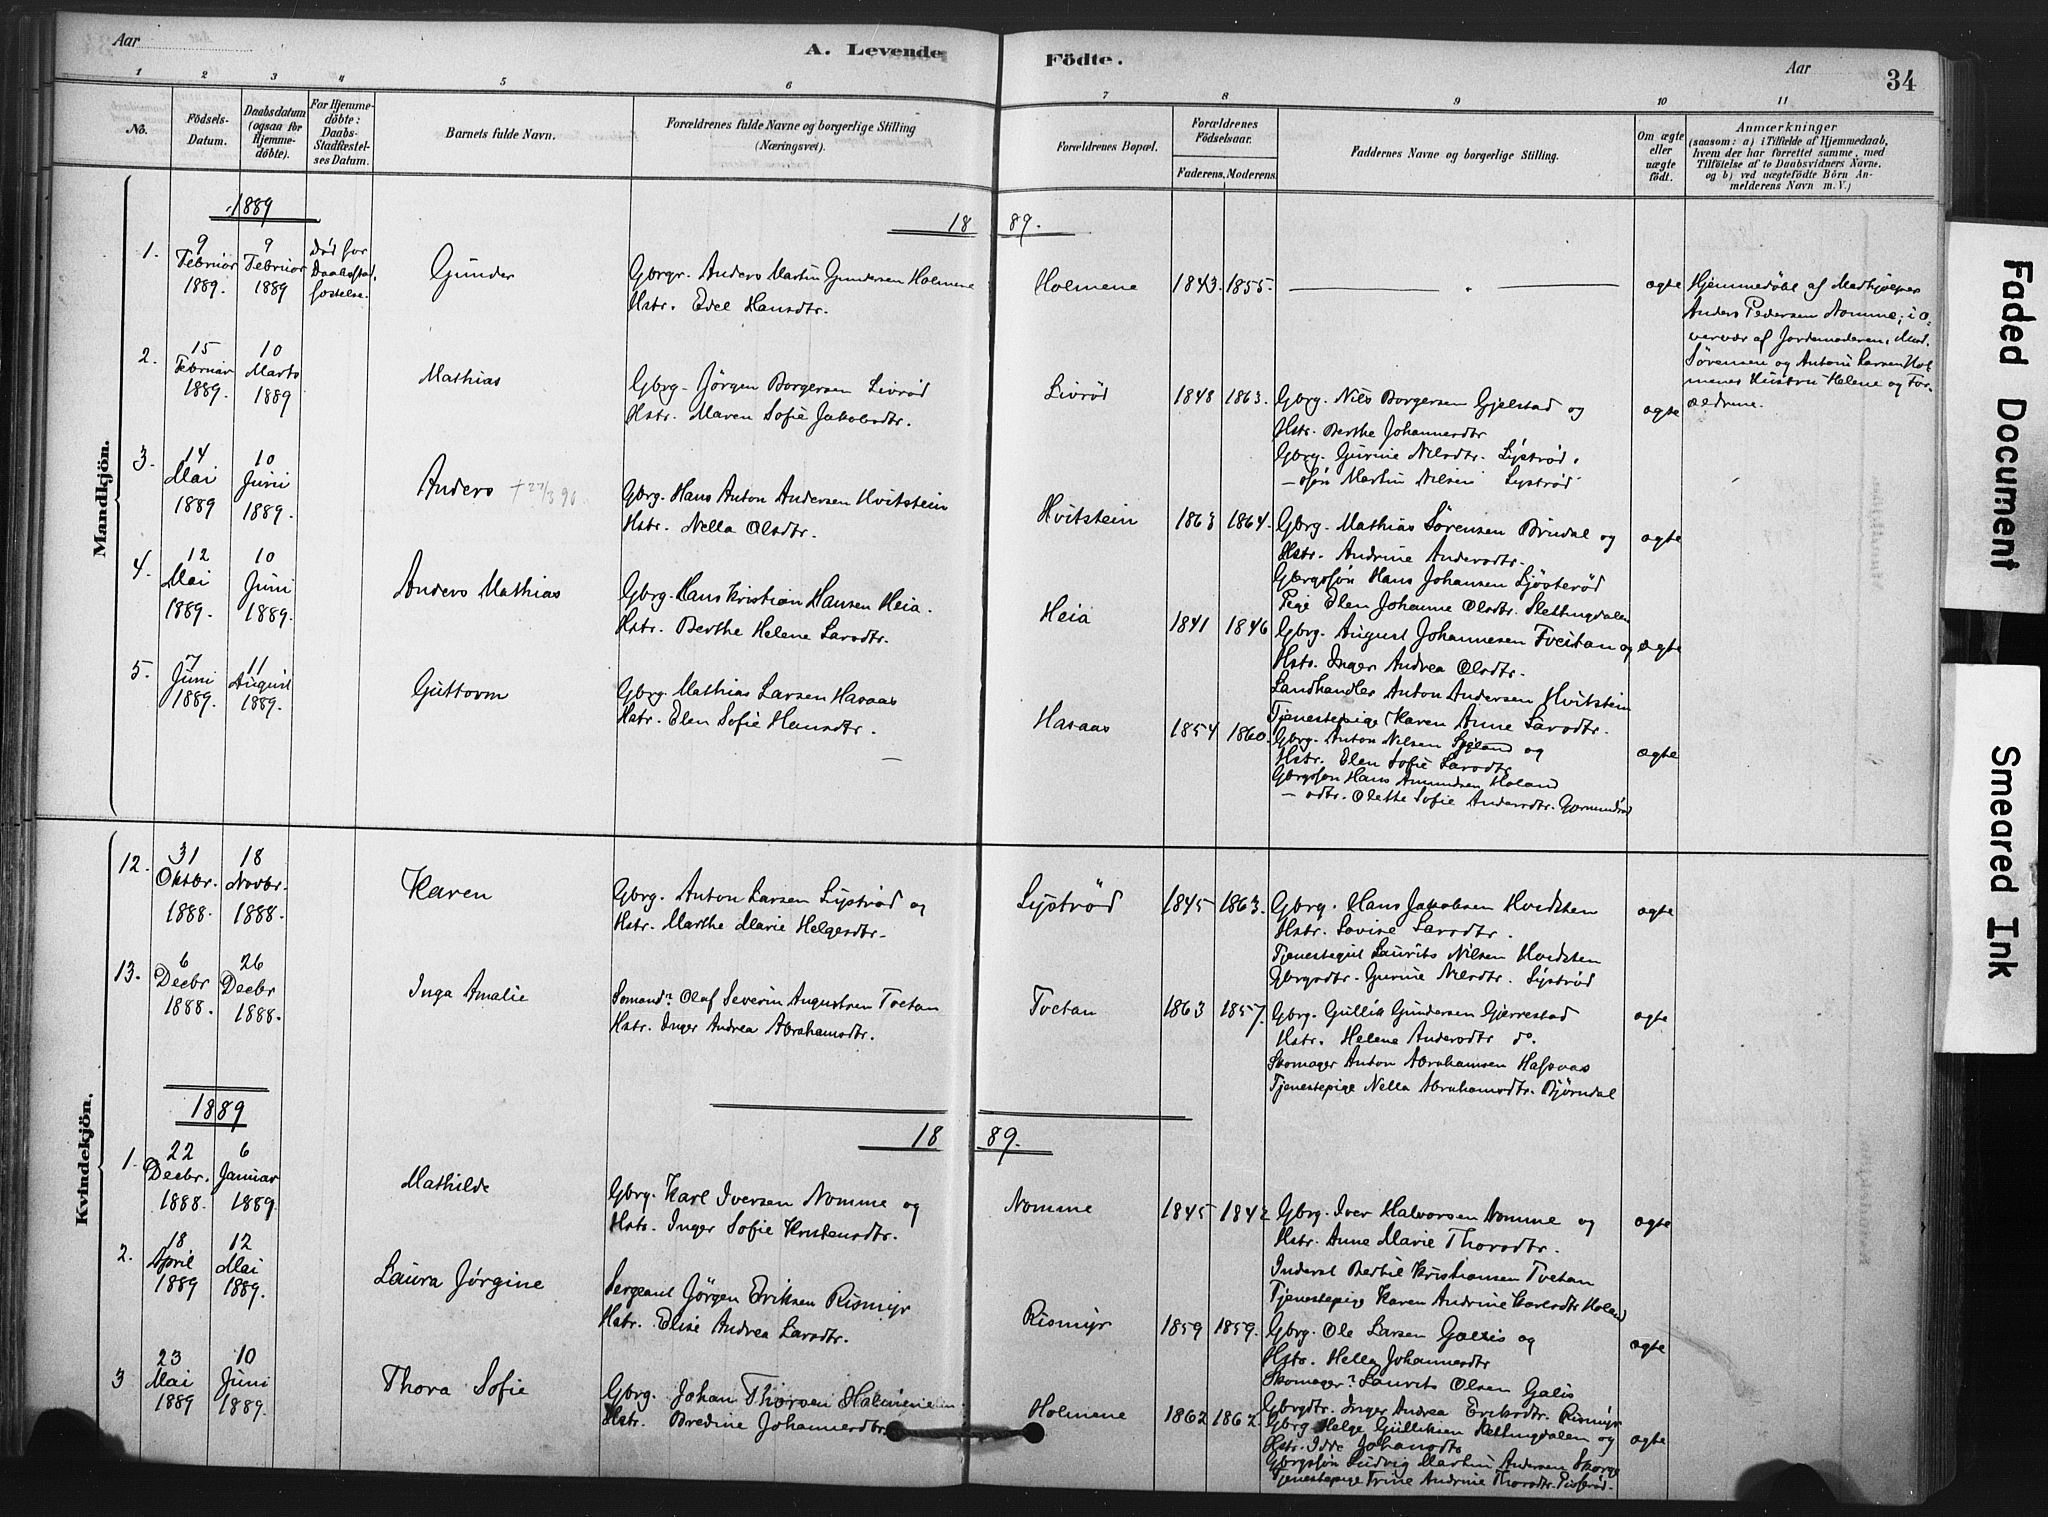 Aar
A. Levende Födte.
Aar
34
1 2 3 4 5 6 7 8 9 10 11
No.
Födsels-
Datum.
Daabsdatum
(ogsaa for
Hjemme-
döbte).
For Hjemme-
döbte:
Daabs-
Stadfæstel-
ses Datum.
Barnets fulde Navn.
Forældrenes fulde Navne og borgerlige Stilling
(Næringsvei).
Forældrenes Bopæl.
Forældrenes
Födselsaar.
Faderens. Moderens.
Faddernes Navne og borgerlige Stilling.
Om ægte
eller
uægte
födt.
Anmærkninger
(saasom: a) i Tilfælde af Hjemmedaab,
hvem der har forrettet samme, med
Tilföielse af to Daabsvidners Navne,
og b) ved uægtefödte Börn An-
melderens Navn m. V.)
Mandkjön.
1889
18 89.
1.
9
Februar
1889.
9
Februar
1889
Död før
Daabsstad
fæstelse.
Gunder
Gbrgr. Anders Martin Gundersen Holmene
Hstr. Edel Hansdtr.
Holmene
1843. 1855.
ægte
Hjemmedöbt af Medhjælper
Anders Pedersen Nomme, i o-
vervær af Jordemoderen, Mad.
Sörensen og Anton Larsen Hol
menes Hustru Helene og For-
ældrene.
2.
15
Februar
1889.
10
Marts
1889
Mathias
Gbrg. Jörgen Borgersen Livröd
Hstr. Maren Sofie Jakobsdtr.
Livröd
1848 1863.
Gbrg. Nils Borgersen Gjelstad og
Hstr. Berthe Johannesdtr
Gbrg. Gurine Nilsdtr. Lýströd.
— sön Martin Nilsen Lyströd
ægte
3.
14
Mai
1889
10
Juni
1889.
Anders + 27/3 90.
Gbrg. Hans Anton Andersen Hvitstein
Hstr. Nella Olsdtr.
Hvitstein
1863 1864.
Gbrg. Mathias Sörensen Brndal og
Hstr. Andrine Andersdtr.
Gbrgssön Hans Johansen Sjösteröd
Pige Elen Johanne Olsdtr. Slettingdalen
ægte
4.
12
Mai
1889.
10
Juni
1889.
Anders Mathias
Gbrg. Hans Kristian Hansen Heia.
Hstr. Berthe Helene Larsdtr.
Heia
1841 1846
Gbrg. August Johannesen Tveitan og
Hstr. Inger Andrea Olsdtr.
Landhandler Anton Andersen Hvitstein
Tjenestepige Karen Anne Larsdtr.
ægte
5.
7
Juni
1889.
11
August
1889.
Guttorm
Gbrg. Mathias Larsen Hasaas
Hstr. Elen Sofie Hansdtr.
Hasaas
1854 1860.
Gbrg. Anton Nilsen og
Hstr. Elen Sofie Larsdtr
Gbrgssön Hans Amundsen Holand
— sdtr. Olette Sofie Andersdtr.
ægte
Kvindekjön.
12.
31
Oktbr.
1888.
18
Novbr.
1888.
Karen
Gbrg. Anton Larsen Lyströd og
Hstr. Marthe Marie Helgesdtr.
Lyströd
1845 1863.
Gbrg. Hans Jakobsen Hvidsten
Hstr. Lovise Larsdtr.
Tjenestegut Laurits Nilsen Hvidsten
Gbrgsdtr. Gurine Nilsdtr. Lyströd
ægte
13.
6
Decbr
1888.
26
Decbr
1888.
Inga Amalie
Sömand Olaf Severin Augustsen Tvetan
Hstr. Inger Andrea Abrahamsdtr.
Tvetan
1863 1857.
Gbrg. Gullik Gundersen Gjerrestad
Hstr. Helene Andersdtr do.
Skomager Anton Abrahamsen Hasaas
Tjenestepige Nella Abrahamsdtr. Björndal
ægte
1889
18 89.
1.
22
Decbr.
1888.
6
Januar
1889
Mathilde
Gbrg. Karl Iversen Nomme og
Hstr. Inger Sofie Kristensdtr.
Nomme
1845 1842
Gbrg. Iver Halvorsen Nomme og
Hstr. Anne Marie Thorsdtr.
Inderst Bertil Kristiansen Tvetan
Tjenestepige Karen Andrine Karlsdtr Holand
ægte
2.
18
April
1889
12
Mai
1889.
Laura Jörgine
Sergeant Jörgen Eriksen Rismyr
Hstr. Elise Andrea Larsdtr.
Rismyr
1859 1859.
Gbrg. Ole Larsen Galis og
Hstr. Helle Johannesdtr
Skomager Laurits Olsen Galis
Gbrgdtr. Inger Andrea Eriksdtr. Rismyr
ægte
3
23
Mai
1889
10
Juni
1889.
Thora Sofie
Gbrg. Johan Thorsen Holmene
Hstr. Bredine Johannesdtr.
Holmene
1862 1862.
Gbrg Helge Gulliksen Slettingdalen og
Hstr. Idde Johansdtr
Gbrgssön Ludvig Martin Andersen Skorge
Tjenestepige Trine Andrine Thorsdtr.
ægte
Faded Document
Smeared Ink